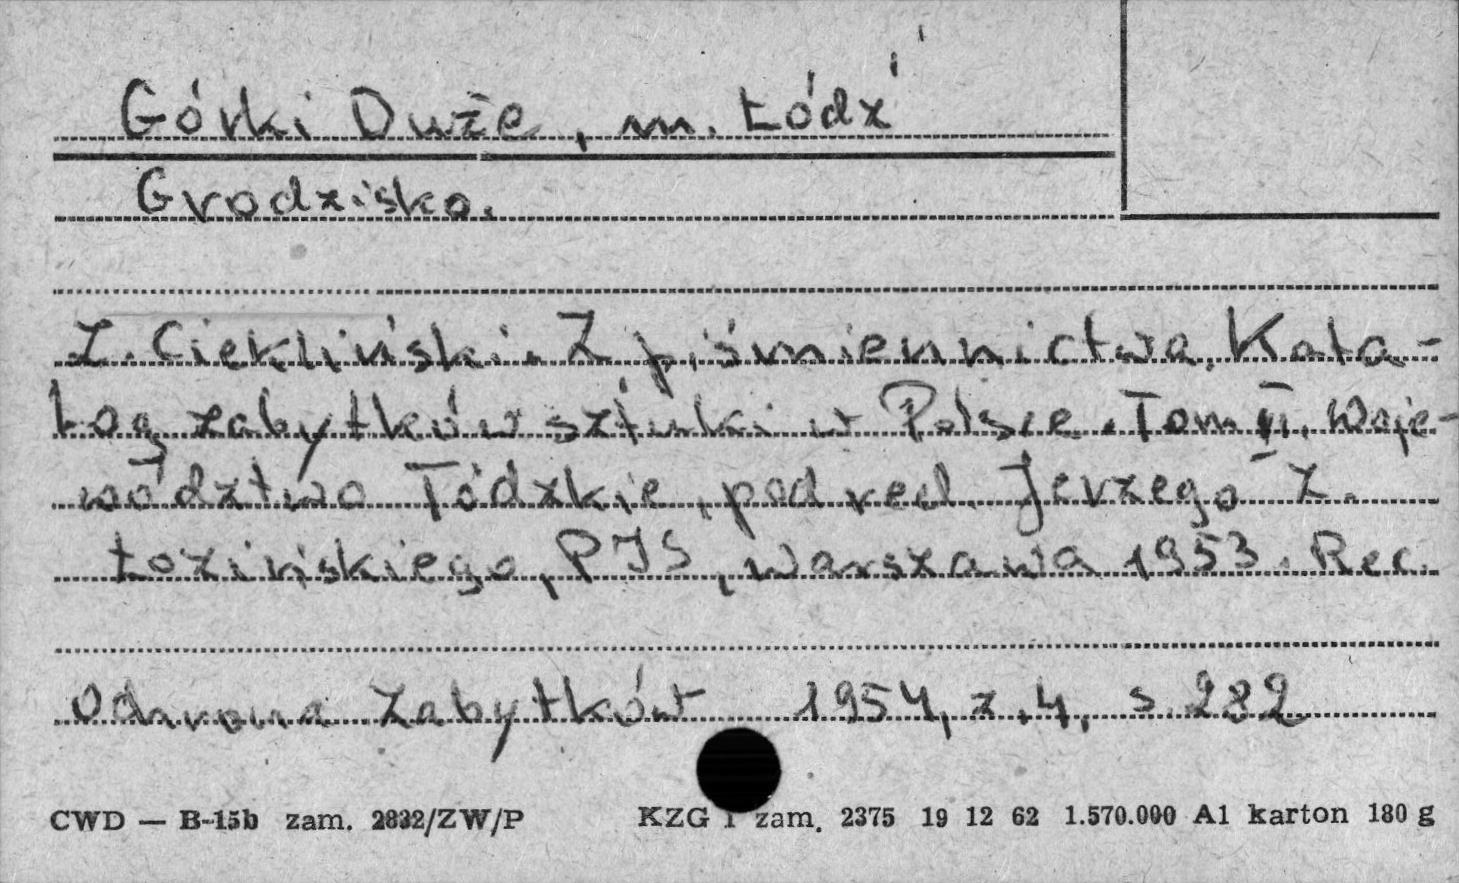 Górki Duże, m. Łódź
Grodzisko.
Z. Ciekliński. Z piśmiennictwa. Kata-
log zabytków sztuki w Polsce. Tom II. Woje-
wództwo Łódzkie, pod red. Jerzego Z.
Łozińskiego, PIS, Warszawa 1953. Rec.
Ochrona Zabytków 1954, z. 4, s. 282
CWD — B-15b zam. 2832/ZW/P KZG 1 zam. 2375 19 12 62 1.570.000 A1 karton 180 g